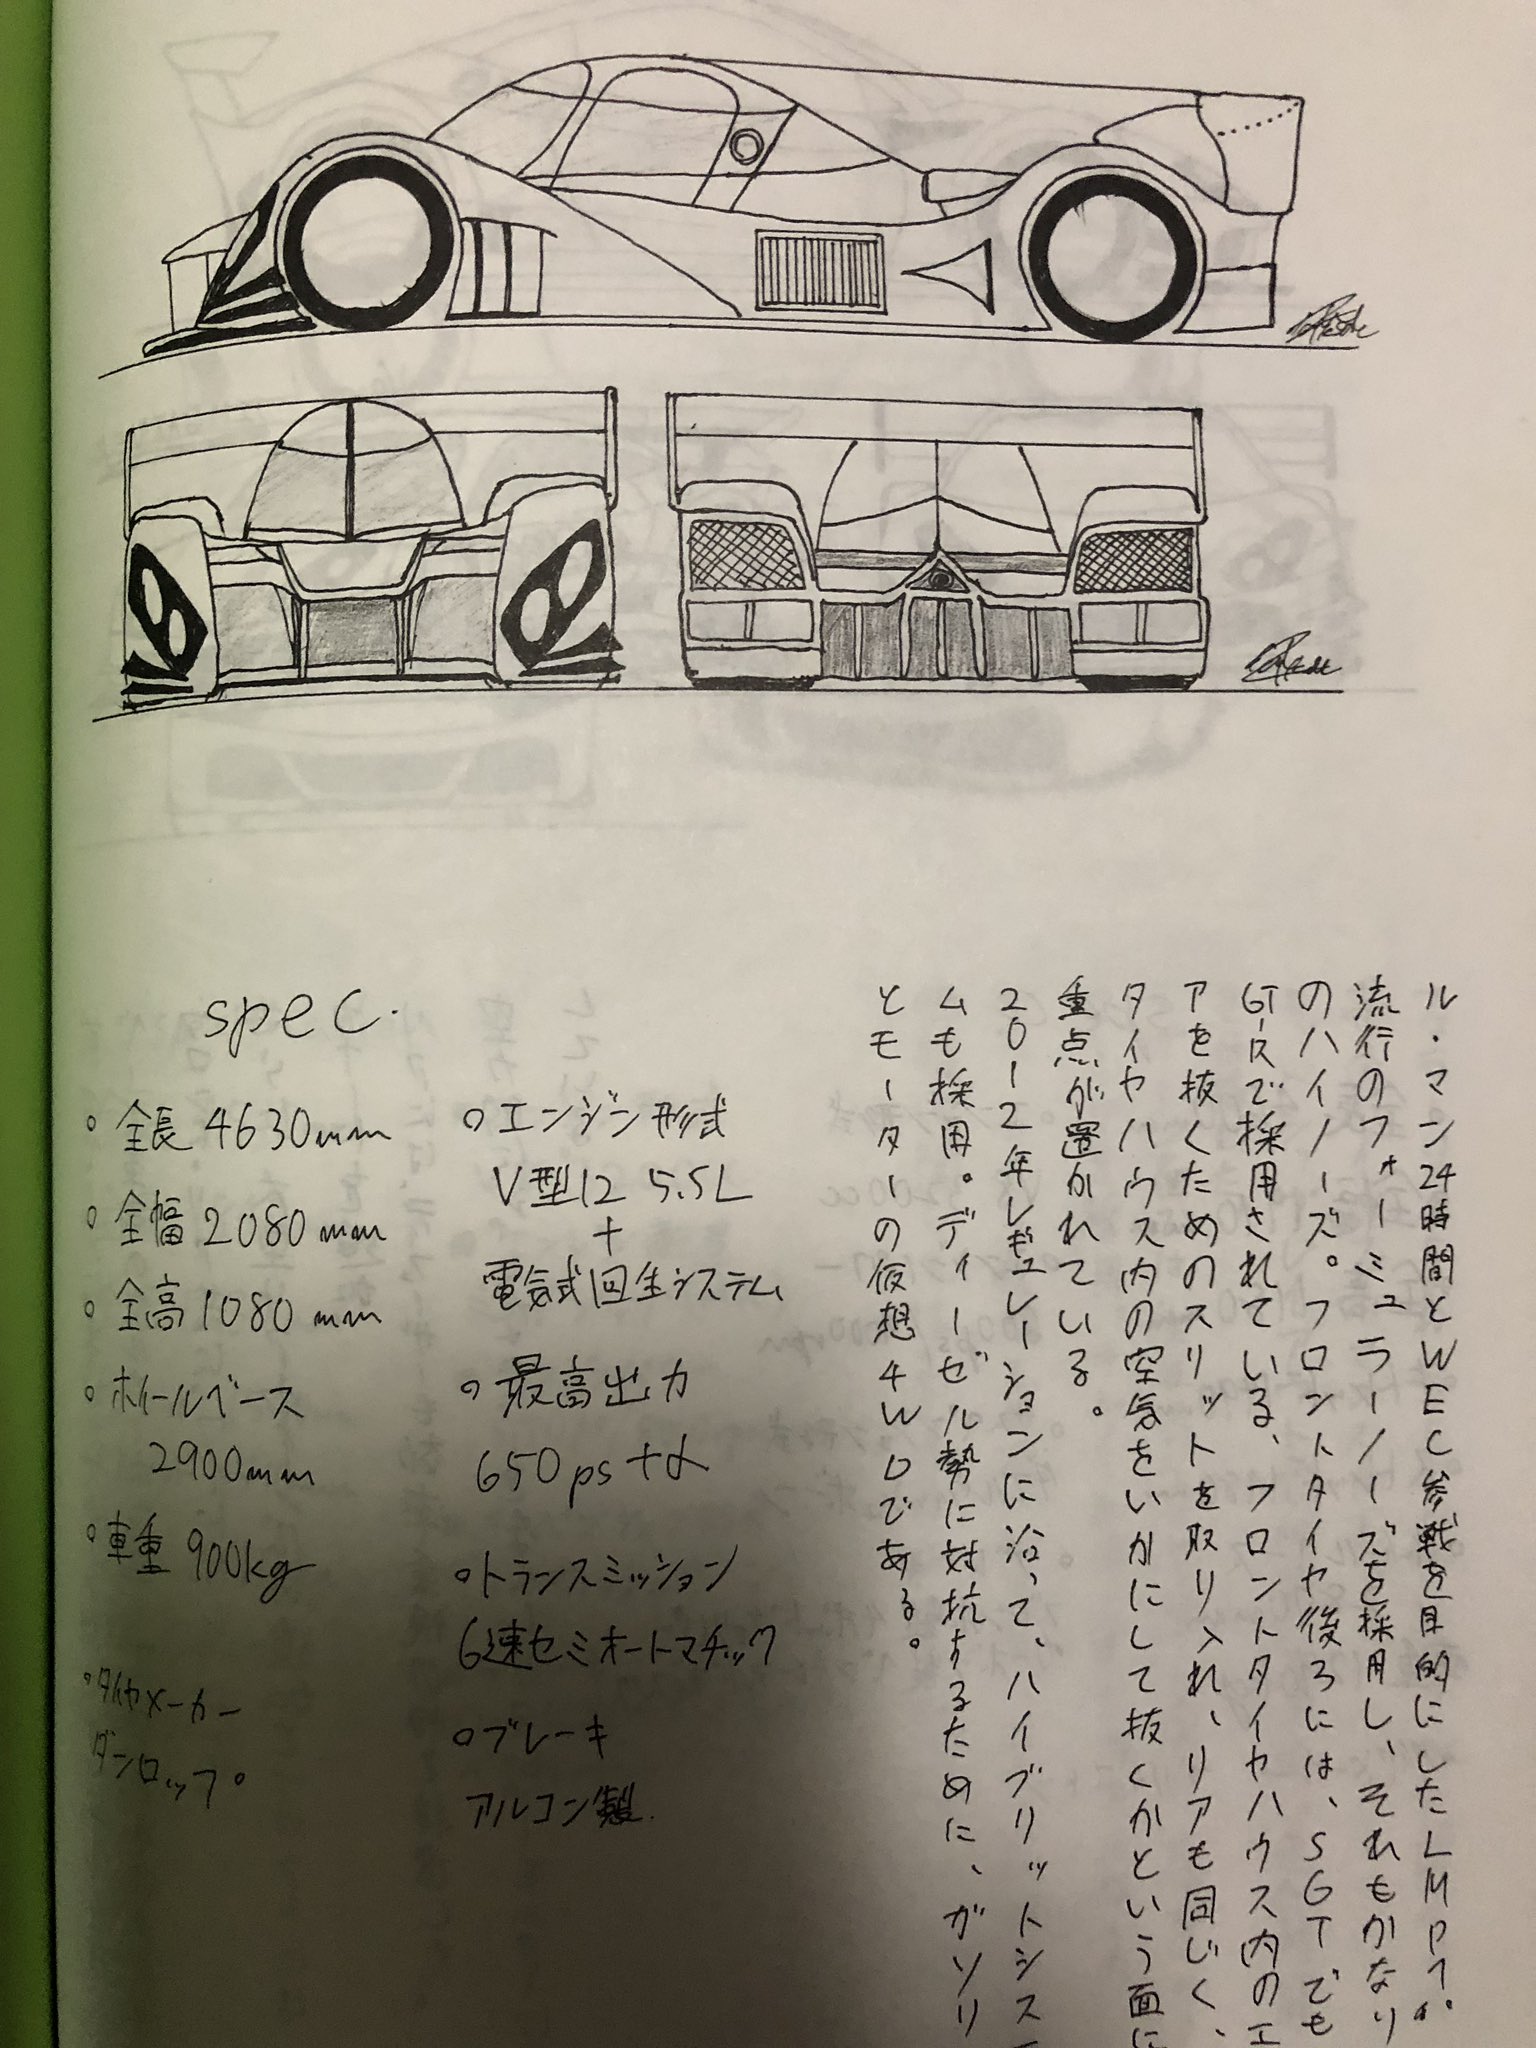 ル・マン24時間とWEC参戦を目的にしたLMP1。
流行のフォーミュラーノーズを採用し、それもかなり
のハイノーズ。フロントタイヤ後ろには、SGTでも
GT-Rで採用されている、フロントタイヤハウス内のエ
アを抜くためのスリットを取り入れ、リアも同じく、
タイヤハウス内の空気をいかにして抜くかという面に
重点が置かれている。
2012年レギュレーションに沿って、ハイブリットシステ
ムも採用。ディーゼル勢に対抗するために、ガソリ
とモーターの仮想4WDである。
spec.
・全長 4630mm
・全幅 2080mm
・全高 1080mm
・ホイールベース
2900mm
・車重 900kg
・タイヤメーカー
ダンロップ。
・エンジン形式
V型12 5.5L
+
電気式回生システム
・最高出力
650ps+α
・トランスミッション
6速セミオートマチック
・ブレーキ
アルコン製.